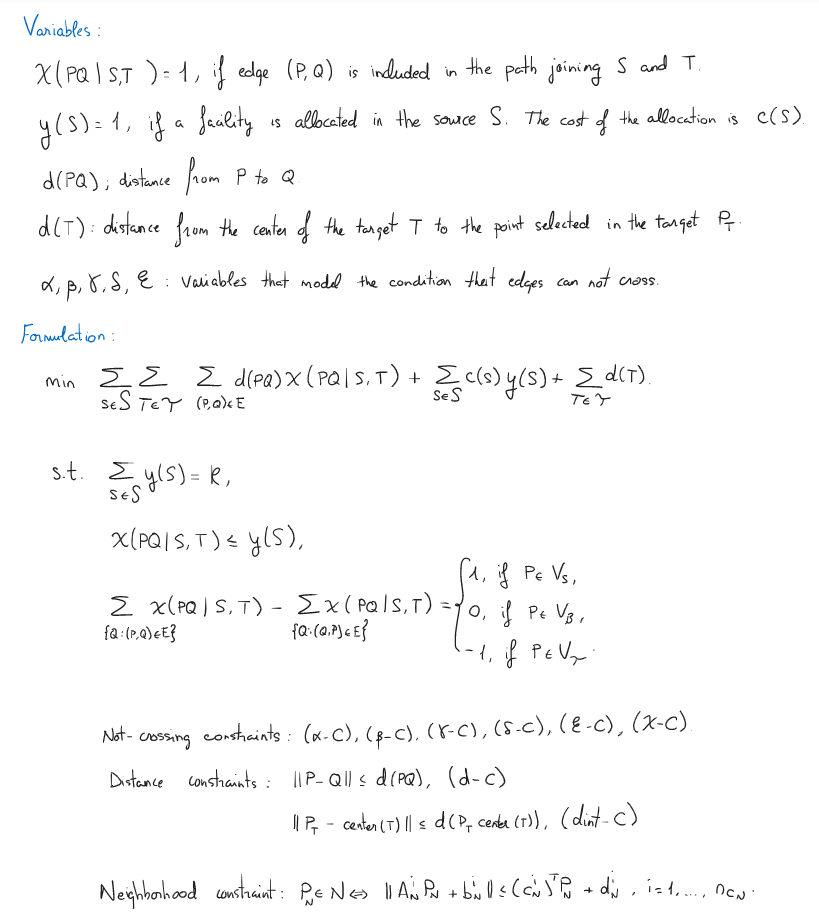 Variables :
X(PQ | S,T ) = 1, if edge (P, Q) is included in the path joining S and T.
y(S) = 1, if a facility is allocated in the source S. The cost of the allocation is c(S).
d(PQ) ; distance from P to Q.
d(T) : distance from the center of the target T to the point selected in the target P_T.
α, β, γ, δ, ε : Variables that model the condition that edges can not cross.
Formulation :
min Σ_{S∈S} Σ_{T∈𝒯} Σ_{(P,Q)∈E} d(PQ) X(PQ | S, T) + Σ_{S∈S} c(S) y(S) + Σ_{T∈𝒯} d(T).
s.t. Σ_{S∈S} y(S) = k,
X(PQ | S, T) ≤ y(S),
Σ_{{Q:(P,Q)∈E}} X(PQ | S, T) - Σ_{{Q:(Q,P)∈E}} X(PQ | S, T) = { 1, if P∈ V_S,
0, if P∈ V_B,
-1, if P∈ V_𝒯.
Not-crossing constraints : (α-C), (β-C), (γ-C), (δ-C), (ε-C), (X-C)
Distance constraints : ||P-Q|| ≤ d(PQ), (d-C)
|| P_T - center(T) || ≤ d(P_T center(T)), (dint-C)
Neighborhood constraint : P_N∈ N ⇔ || A_N^i P_N + b_N^i || ≤ (c_N^i)^T P_N + d_N^i , i=1,..., nc_N.